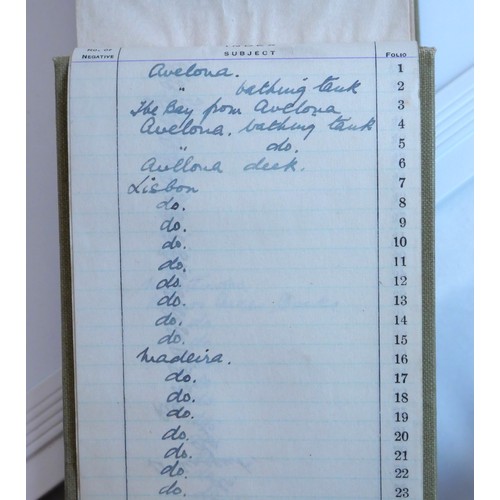 NO. OF NEGATIVE SUBJECT FOLIO
Avelona. 1
" bathing tank 2
The Bay from Avelona 3
Avelona. bathing tank 4
" do. 5
Avellona deck. 6
Lisbon 7
do. 8
do. 9
do. 10
do. 11
do. 12
do. 13
do. 14
do. 15
Madeira. 16
do. 17
do. 18
do. 19
do. 20
do. 21
do. 22
do. 23